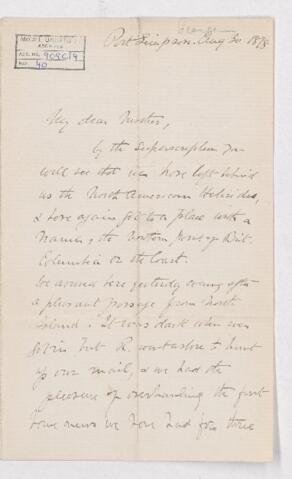 George
Port Simpson. Aug 30. 1878
McGILL UNIVERSITY
ARCHIVES
ACC. NO. 909C/9
NO. 40
My dear Mother,
by the superscription you
will see that we have left behind
us the North American Hebrides,
& have again got to a place with a
name, the Northern Port of Brit.
Columbia on the Coast.
We arrived here yesterday evening after
a pleasant passage from North
Island. It was dark when we
got in but R. went ashore to hunt
up our mail, & we had the
pleasure of overhauling the first
home news we have had for three